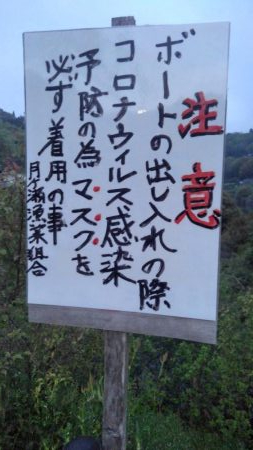 注意
ボートの出し入れの際
コロナウィルス感染
予防の為マスクを
必ず着用の事
月ヶ瀬漁業組合